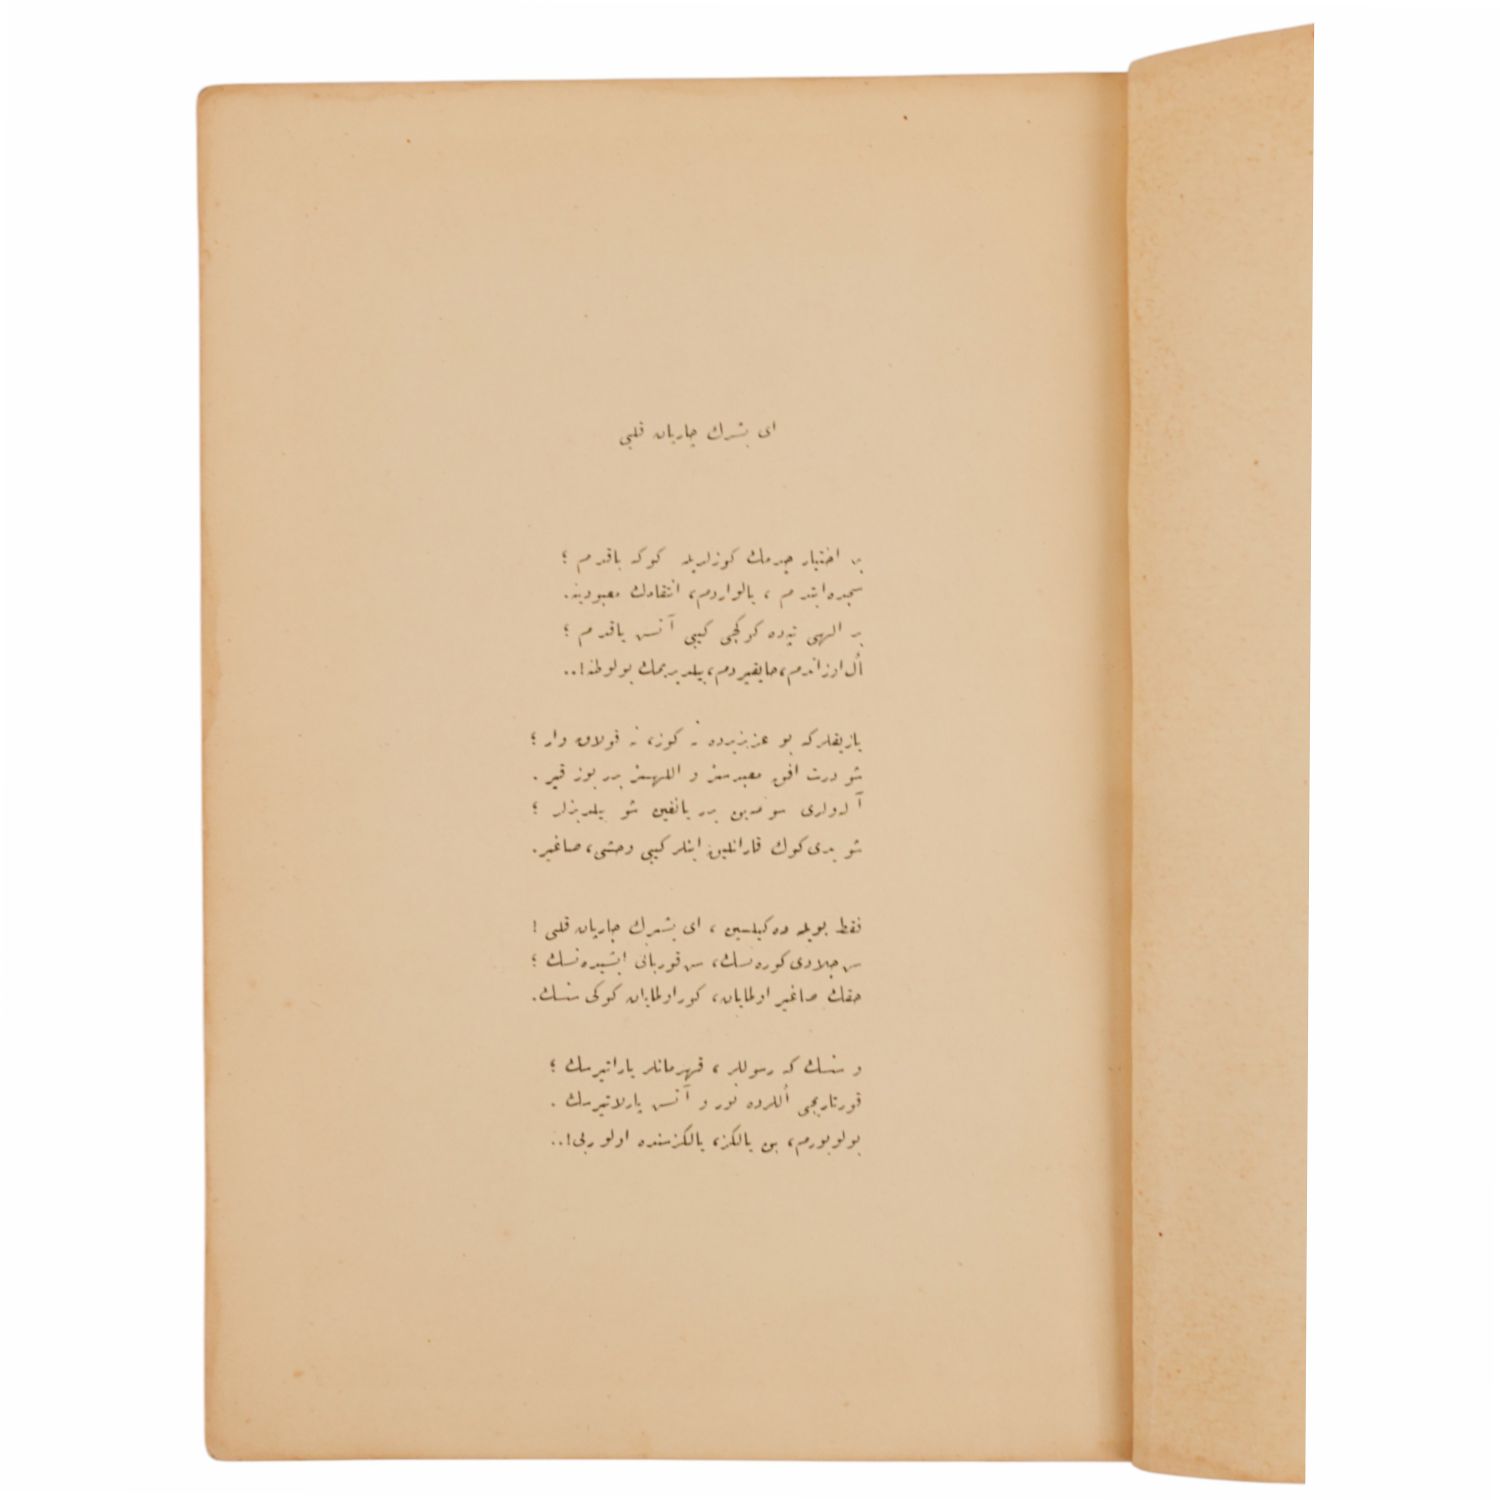 ای بشرك چارپان قلبی
بر اختیار چیرمك كوزلریله كوكه باقدم ؛
سجده ایتدم ، یالواردم، انتقامك معبودینه.
بر الهی كبی آتش یاقدم ؛
أل اوزاندم، حایقیردم، بیلدیریمك بولوطنه!..
یازیقلركه بو نه كوز، نه قولاق وار ؛
شو درت افق معبدسز و اللهسز بر بوز قیر .
آلولری سونمه‌ین بر یانغین شو ییلدیزلر ؛
شو یدی كوك قارانلین اینلر كبی وحشی، صاغیر.
فقط بویله ده‌كیلسین ، ای بشرك چارپان قلبی !
سن جلادی كوره‌نسك، سن قوربانی ایشیده‌نسك ؛
حقك صاغیر اولمایان، كور اولمایان كوكی سنسك.
و سنسك كه رسوللر ، قهرمانلر یاراتیرسك ؛
قورتاریجی أللرده نور و آتش پارلاتیرسك .
بولویورم، بن یالكز، یالكز سنده اولو ربی!..